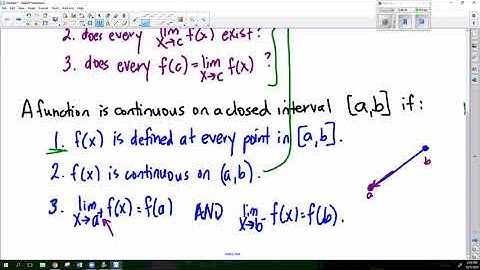 2. does every lim x→c f(x) exist?
3. does every f(c) = lim x→c f(x)?
A function is continuous on a closed interval [a,b] if:
1. f(x) is defined at every point in [a,b].
2. f(x) is continuous on (a,b).
3. lim x→a⁺ f(x) = f(a) AND lim x→b⁻ f(x) = f(b).
b
a